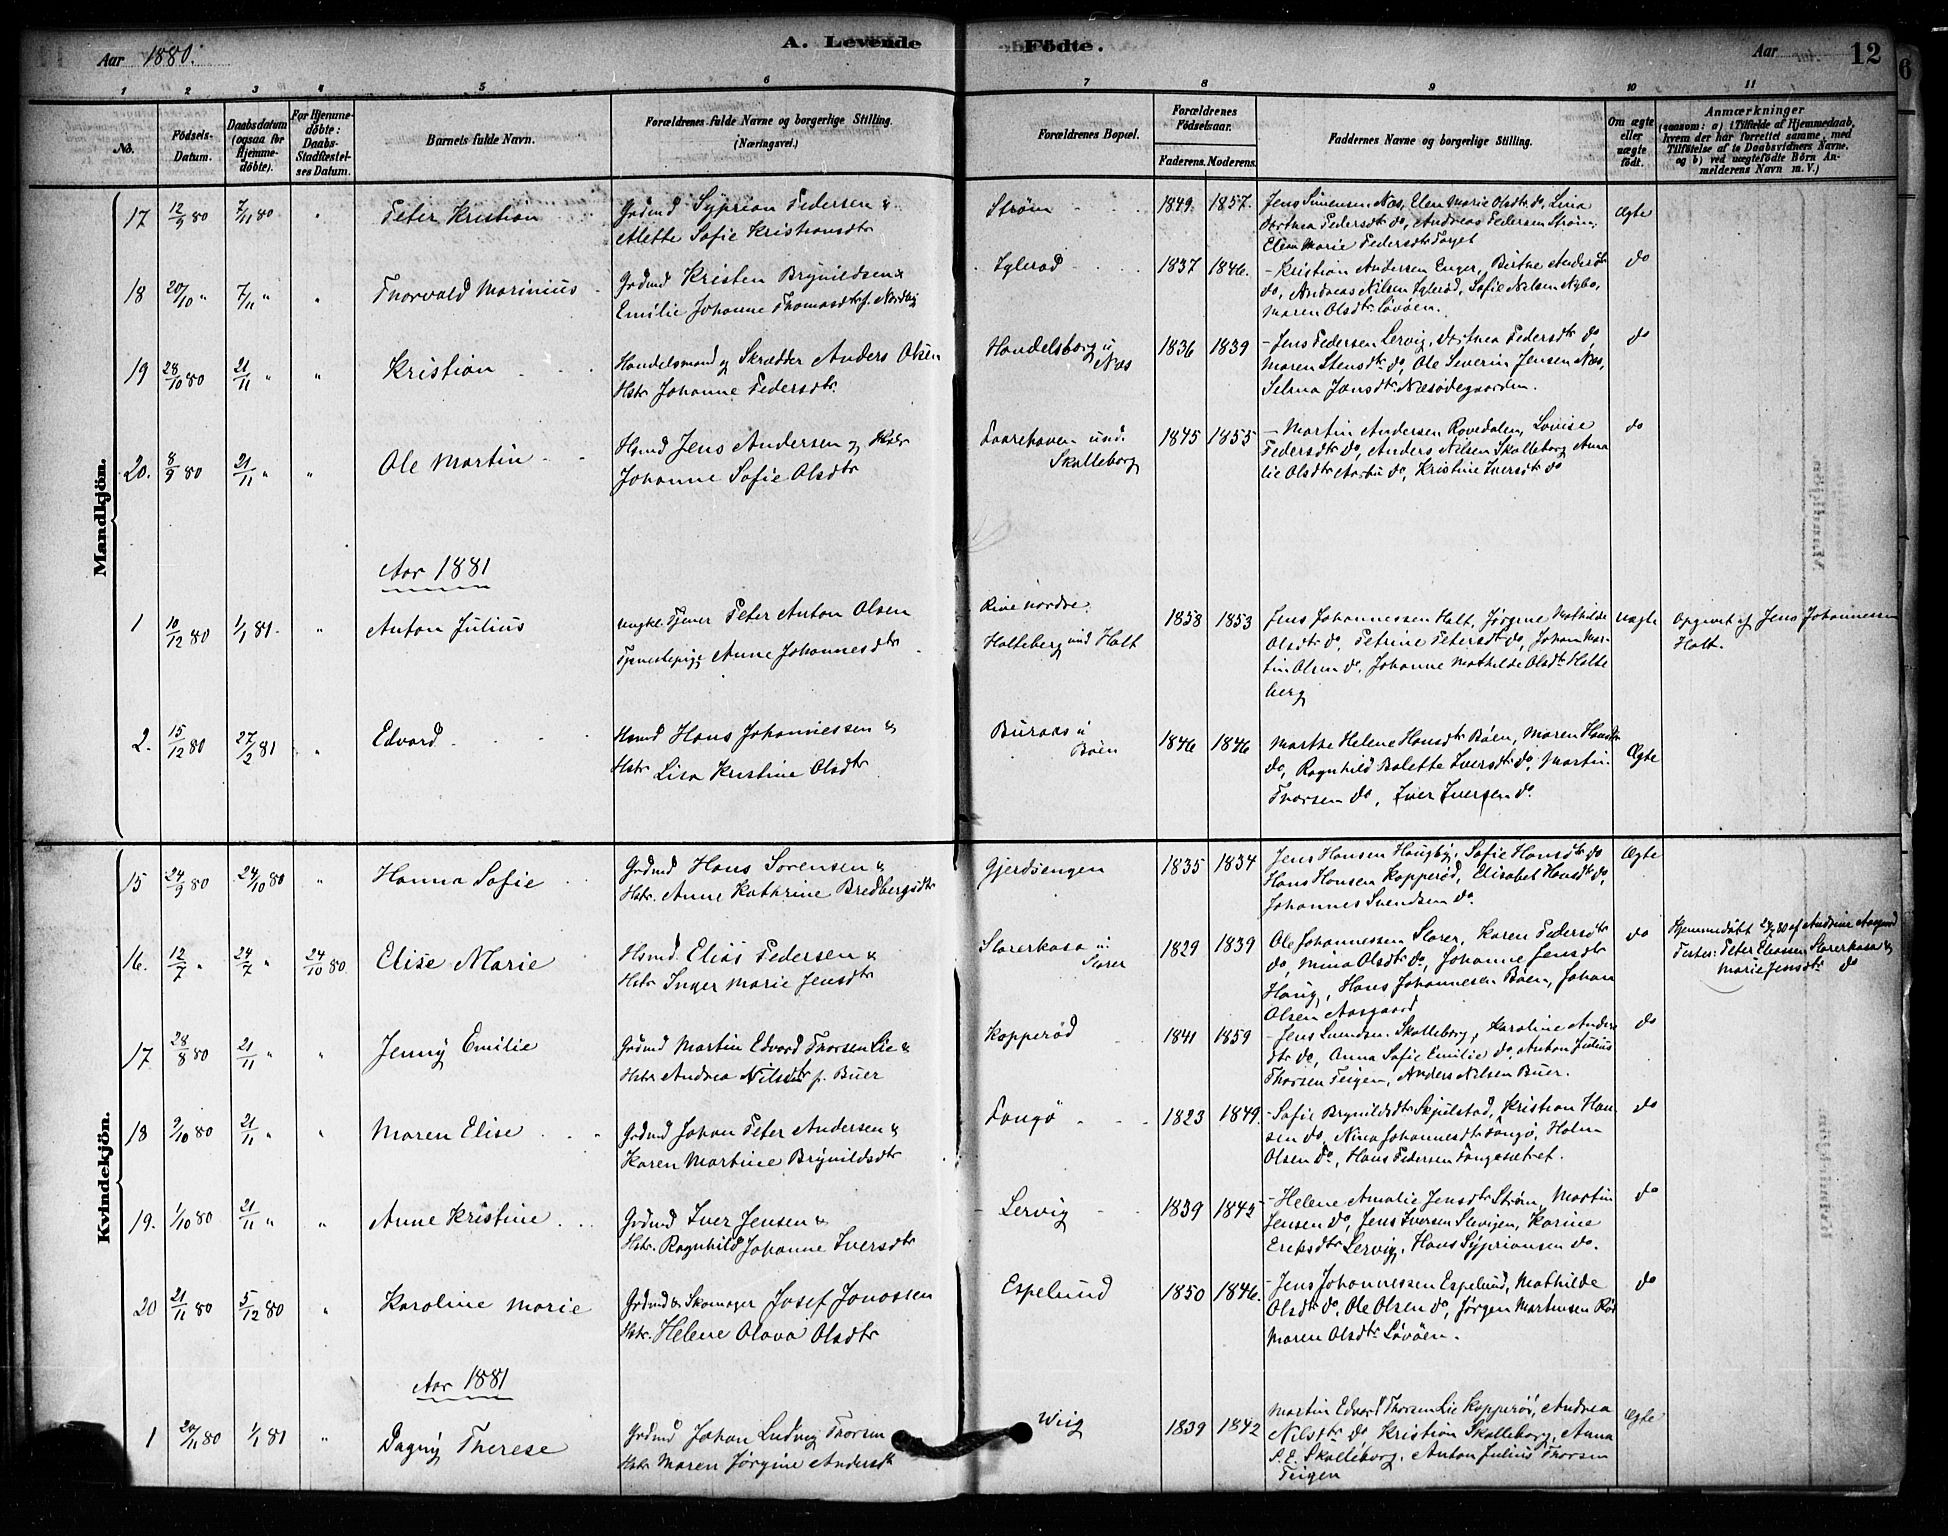 Aar 1880.
A. Levende Fødte.
Aar
12
6
1 2 3 4 5 6 7 8 9 10 11
No.
Fødsels-Datum.
Daabsdatum (ogsaa for Hjemmedøbte).
For Hjemmedøbte: Daabs-Stadfæstelses Datum.
Barnets fulde Navn.
Forældrenes fulde Navne og borgerlige Stilling. (Næringsvei.)
Forældrenes Bopæl.
Forældrenes Fødselsaar.
Faderens. Moderens.
Faddernes Navne og borgerlige Stilling.
Om ægte eller uægte født.
Anmærkninger
(saasom: a) i Tilfælde af Hjemmedaab, hvem der har forrettet samme, med Tilføielse af to Daabsvidners Navne. og b) ved uægtefødte Børn Anmelderens Navn m. V.)
Mandkjön.
17 12/9 80 7/11 80 " Peter Kristian
Grdmd Syprian Pedersen &
Alette Sofie Kristiansdtr
Strøm 1849 1857
Jens Simensen Næs, Elen Marie Olsdtr do, Lina
Dorthea Pedersdtr do, Andreas Pedersen Strøm,
Elen Marie Pedersdtr Torget
Ægte
18 20/10 " 7/11 " " Thorvald Marinius
Grdmd Kristen Brynildsen &
Emilie Johanne Thomasdtr f. Nordby
Iglerød 1837 1846.
- Kristian Andersen Enger, Birthe Andersdtr
do, Andreas Nilsen Iglerød, Sofie Nilsen Nybo,
Maren Olsdtr Løvøen.
do
19 28/10 80 21/11 " " Kristian
Handelsmand og Skrædder Anders Olsen
Hstr Johanne Pedersdtr.
Handelsborg u
Næs
1836 1839
- Jens Pedersen Lervig, Dorthea Pedersdtr do,
Maren Stensdtr do, Ole Severin Jensen Næs,
Selma Jansdtr Næsødegaarden.
do
20. 8/9 80 21/11 " " Ole Martin
Hsmd Jens Andersen og Hstr
Johanne Sofie Olsdtr
Faarehaven und.
Skolleborg
1845 1855
- Martin Andersen Rovedalen, Lovise
Pedersdtr do, Anders Nilsen Skolleborg, Ama
lie Olsdtr Aasbu do, Kristine Iversdtr do
do
Aar 1881
1 10/12 80 1/1 81. " Anton Julius
Ungkl. Tjener Peter Anton Olsen
Tjenestepige Anne Johannesdtr
Rive nordre,
Holteberg und Holt
1858 1853
Jens Johannessen Holt, Jørgine Mathilde
Olsdtr do, Petrine Petersdtr do, Johan Mar-
tin Olsen do, Johanne Mathilde Olsdtr Holte
berg
uægte
Opgivet af Jens Johannessen
Holt.
2. 15/12 80 27/2 81 " Edvard
Hsmd Hans Johannessen &
Hstr Lisa Kristine Olsdtr
Buraas u
Bøen
1846 1846
Marthe Helene Hansdtr Bøen, Maren Hansdtr
do, Ragnhild Bolette Iversdtr do, Martin
Thorsen do, Iver Iversen do
Ægte
Kvindekjön.
15 24/9 80 24/10 80 " Hanna Sofie
Grdmd Hans Sørensen &
Hstr. Anne Kathrine Bredbergsdtr
Gjerdsengen 1835 1834
Jens Hansen Haugby, Sofie Hansdtr do
Hans Hansen Kopperød, Elisabet Hansdtr do,
Johannes Svendsen do
Ægte
16. 12/7 " 24/7 " 24/10 80. Elise Marie
Hsmd. Elias Pedersen &
Hstr Inger Marie Jensdtr
Slorerkasa u
Slorer
1829 1839
Ole Johannessen Slorer, Karen Pedersdtr
do, Mina Olsdtr do, Johanne Jensdtr
Haug, Hans Johannesen Bøen, Johan
Olsen Aasgaard
do
Hjemmedøbt 24/7 80 af Andrine Aasgaard
Testes: Peter Eliassen Slorerkasa &
Marie Jensdtr do
17 28/8 80 21/11 " " Jenny Emilie
Grdmd Martin Edvard Thorsen Lie &
Hstr Andrea Nilsdtr f. Buer
Kopperød 1841 1859
- Jens Svendsen Skolleborg, Karoline Anders
dtr do, Anna Sofie Emilie do, Anton Julius
Thorsen Teigen, Anders Nilsen Buer.
do
18 9/10 80 21/11 " " Maren Elise
Grdmd Johan Peter Andersen &
Karen Martine Brynildsdtr
Tangø 1823 1849.
- Sofie Brynildsdtr Skjulstad, Kristian Han
sen do, Nina Johannesdtr Tangø, Holm
Olsen do, Hans Pedersen Tangesetret.
do
19. 1/10 80 21/11 " " Anne Kristine
Grdmd Iver Jensen &
Hstr. Ragnhild Johanne Iversdtr
Lervig 1839 1845
- Helene Amalie Jensdtr Strøm, Martin
Jensen do, Jens Iversen Slevigen, Karine
Eriksdtr Lervig, Hans Syprionsen do.
do
20 21/11 80 5/12 80 " Karoline Marie
Grdmd & Skomager Josef Jonassen
Hstr. Helene Olava Olsdtr
Espelund 1850 1846.
- Jens Johannessen Espelund, Mathilde
Olsdtr do, Ole Olsen do, Jørgen Martinsen Rød
Maren Olsdtr Løvøen.
do
Aar 1881
1 20/11 80 1/1 81 " Dagny Therese
Grdmd Johan Ludvig Thorsen
Hstr Maren Jørgine Andersdtr
Wiig 1839 1842
Martin Edvard Thorsen Lie Kopperød, Andrea
Nilsdtr do Kristian Skolleborg, Anna
S. E. Skolleborg, Anton Julius Thorsen
Teigen
Ægte